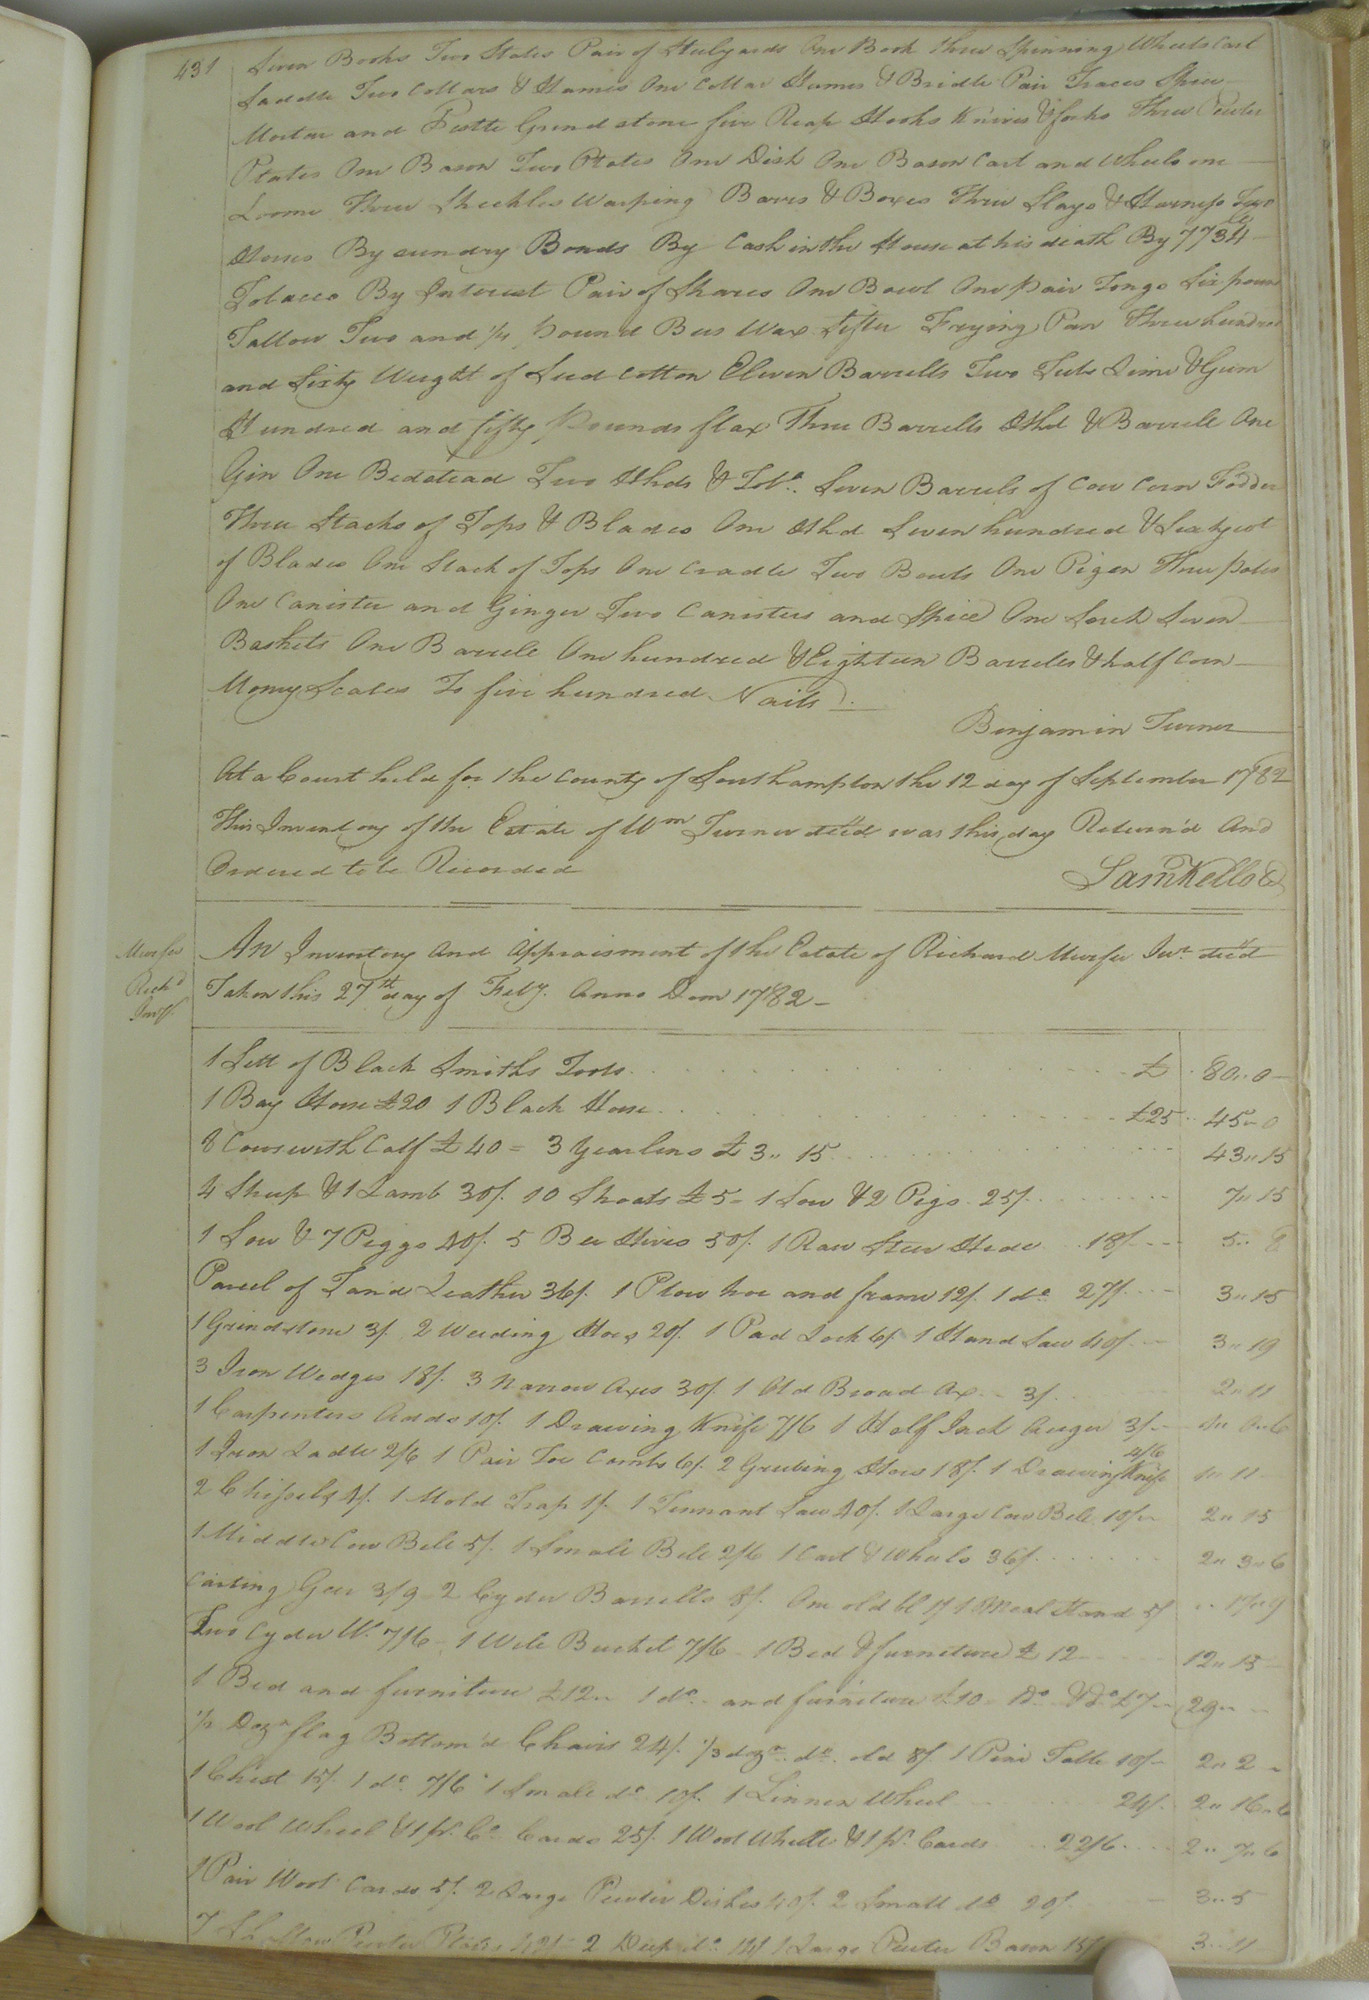 431
Seven Books Two Slates Pair of Stulyards One Book three Spinning Wheels Cart
Saddle Two Collars & Hames One Collar Hames & Bridle Pair Traces Spice
Mortar and Pestle Grind stone five Reap Hooks Knives & forks Three Pewter
Plates One Bason Two Plates One Dish One Bason Cart and Wheels one
Loome Three Shickles Warping Barrs & Boxes Three Slays & Harness Two
Horses By sundry Bonds By Cash in the House at his death By 7734
Tobacco By Interest Pair of Shares One Bowl One pair Tongs Six pound
Tallow Two and 1/4 pound Bees Wax Sifter Frying Pan Three hundred
and Sixty Weight of Seed Cotton Eleven Barrells Two Tubs Lime & Gum
Hundred and fifty Pounds flax Three Barrells Hhd & Barrell One
Gin One Bedstead Two Hhds & Toba. Seven Barrels of Cow Corn Fodder
Three Stacks of Tops & Blades One Hhd Seven hundred & Sixty wt
of Blades One Stack of Tops One Cradle Two Bowls One Pigen Three pots
One Canister and Ginger Two Canisters and Spice One Seven
Baskets One Barrele One hundred & Eighteen Barreles & half Corn
Money Scales To five hundred Nails
Benjamin Turner
At a Court held for the County of Southampton the 12 day of September 1782
This Inventory of the Estate of Wm Turner decd was this day Return'd And
Ordered to be Recorded
Saml Kello C
Murfee
Richd
Invy.
An Inventory And Appraisment of the Estate of Richard Murfee Junr decd
Taken this 27th day of Feby. Anno Dom 1782 -
1 Sett of Black Smiths Tools £ 80..0
1 Bay Horse £20 1 Black Horse £25 45..0
8 Cows with Calf £40 = 3 Yearlins £3..15 43..15
4 Sheep & 1 Lamb 30/. 10 Shoats £5- 1 Sow & 2 Pigs 25/. 7..15
1 Sow & 7 Piggs 40/. 5 Bee Hives 50/. 1 Raw Steer Hide 18/- 5..8
Parcel of Tand Leather 36/. 1 Plow hoe and frame 12/. 1 do. 27/. 3..15
1 Grindstone 3/. 2 Weeding Hoes 20/. 1 Pad Lock 6/. 1 Hand Saw 40/- 3..19
3 Iron Wedges 18/. 3 Narrow Axes 30/. 1 Old Broad Ax 3/. 2..11
1 Carpenters Adds 10/. 1 Drawing Knife 7/6 1 Half Inch Auger 3/- 1..0..6
1 Iron Ladle 2/6 1 Pair Toe Combs 6/. 2 Grubing Hoes 18/. 1 Drawing Knife 4/6 1..11
2 Chissels 4/. 1 Mold Trap 1/. 1 Tennant Saw 40/. 1 Large Cow Bell 10/- 2..15
1 Middle Cow Bell 5/. 1 Small Bell 2/6 1 Cart & Wheels 36/. 2..3..6
Carting Geer 3/9 - 2 Cyder Barrells 8/. One old bl 1/ 1 Meal Stand 5/ ..17..9
Two Cyder 7/6 - 1 Well Bucket 7/6 - 1 Bed & furniture £12 12..15
1 Bed and furniture £12.. 1 do. and furniture £10 - 1 do. & do. £7 29..
1/2 Dozn flag Bottom'd Chairs 24/. 1/3 dozn. do. old 8/. 1 Pine Table 10/- 2..2
1 Chest 15/. 1 do. 7/6 1 Small do. 10/. 1 Linnen Wheel 24/. 2..16..6
1 Wool Wheel & 1 pr. Co. Cards 25/. 1 Wool Wheele & 1 pr. Cards 22/6 2..7..6
1 Pair Wool Cards 5/. 2 Large Pewter Dishes 40/. 2 Small do. 20/. 3..5
7 Shallow Pewter Plates 42/- 2 Deep do. 14/ 1 Large Pewter Bason 15/ 3..11